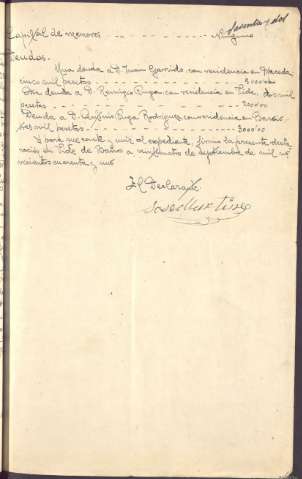 Sesenta y dos
Capital de menores - - - - - - - - - - - - - Ninguno
Deudas.
Una deuda a D. Juan Garrido, con residencia en Maceda
cinco mil pesetas - - - - - - - - - - - - - 5000'00
Otra deuda a D. Remigio con residencia en dos mil
pesetas - - - - - - - - - - - - - 2000'00
Deuda a D. Rodriguez, con residencia en
mil pesetas - - - - - - - - - - - - - 3000'00
Y para que conste y unir al expediente firmo la presente decla
ración en de Baños a veinticuatro de septiembre de mil no
vecientos cuarenta y uno
El Declarante
Jose Martinez